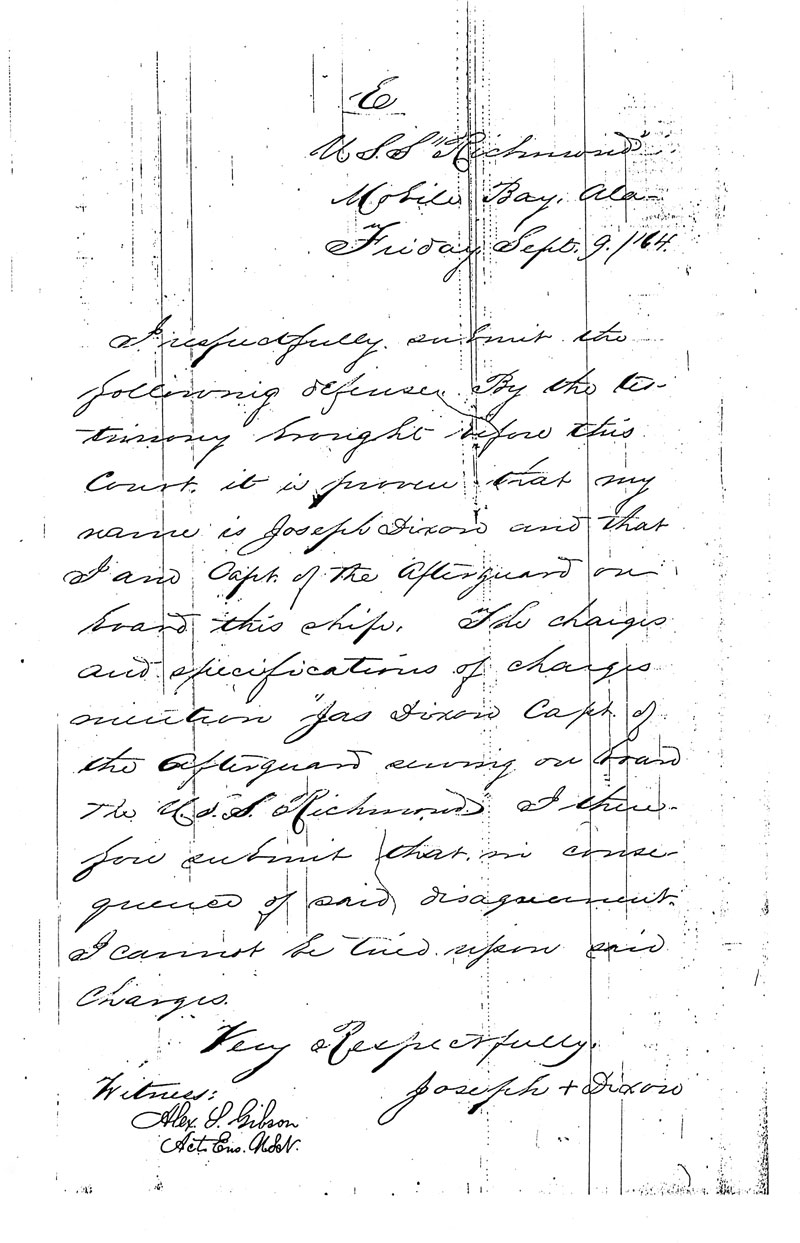 E
U.S.S "Richmond"
Mobile Bay. Ala-
Friday Sept. 9. /64.
I respectfully submit the
following defense. By the tes-
timony brought before this
Court. it is proven that my
name is Joseph Dixon and that
I am Capt. of the Afterguard on
board this ship. The charges
and specifications of charges
mention "Jas Dixon Capt. of
the Afterguard serving on board
The U.S.S. Richmond) I there-
fore submit that in conse-
quence of said disagreement.
I cannot be tried upon said
Charges.
Very Respectfully.
Joseph + Dixon
Witness:
Alex. S. Gibson
Act. Ens. U.S.N.